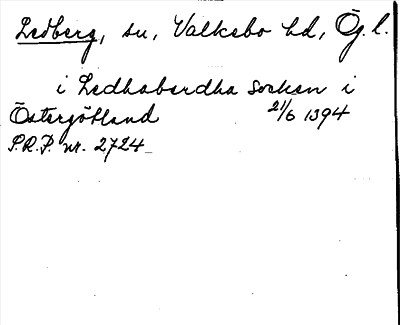 Ledberg, sn, Valkebo hd, Ög. l.
i Ledhabærdha socken i
Östergötland 21/6 1394
S.R.P. nr. 2724